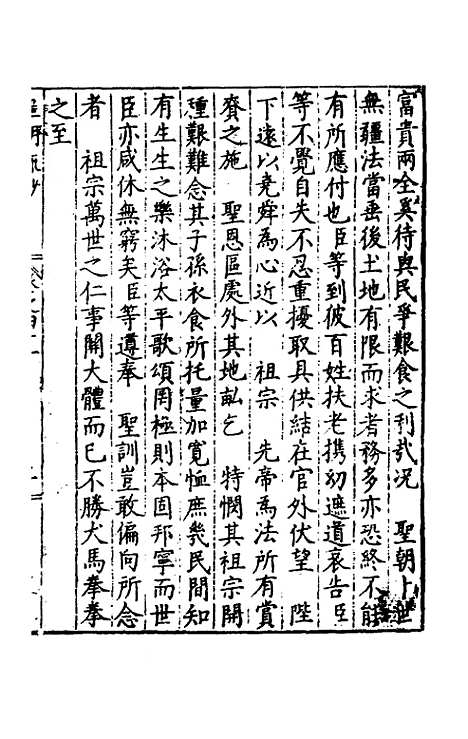 富貴兩全奚待與民爭艱食之利哉况　聖朝卜世
無疆法當垂後土地有限而求者務多亦恐終不能
有所應付也臣等到彼百姓扶老携幼遮道哀告臣
等不覺自失不忍重擾取具供結在官外伏望　陛
下遠以堯舜為心近以　祖宗　先帝為法所有賞
賚之施　聖恩區處外其地畝乞　特憫其祖宗開
種艱難念其子孫衣食所托量加寬恤庶幾民間知
有生生之樂沐浴太平歌頌罔極則本固邦寧而世
臣亦咸休無窮矣臣等遵奉　聖訓豈敢偏向所念
者　祖宗萬世之仁事關大體而已不勝犬馬拳拳
之至